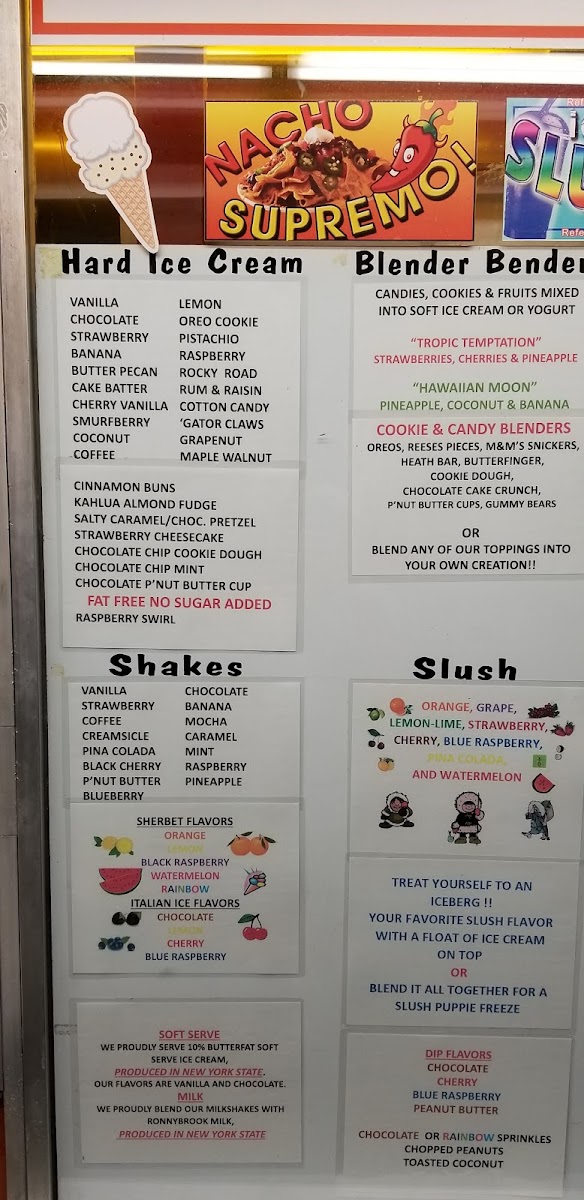 NACHO
SUPREMO!
SLU
Hard Ice Cream
VANILLA
CHOCOLATE
STRAWBERRY
BANANA
BUTTER PECAN
CAKE BATTER
CHERRY VANILLA
SMURFBERRY
COCONUT
COFFEE
LEMON
OREO COOKIE
PISTACHIO
RASPBERRY
ROCKY ROAD
RUM & RAISIN
COTTON CANDY
'GATOR CLAWS
GRAPENUT
MAPLE WALNUT
CINNAMON BUNS
KAHLUA ALMOND FUDGE
SALTY CARAMEL/CHOC. PRETZEL
STRAWBERRY CHEESECAKE
CHOCOLATE CHIP COOKIE DOUGH
CHOCOLATE CHIP MINT
CHOCOLATE P'NUT BUTTER CUP
FAT FREE NO SUGAR ADDED
RASPBERRY SWIRL
Blender Bender
CANDIES, COOKIES & FRUITS MIXED
INTO SOFT ICE CREAM OR YOGURT
"TROPIC TEMPTATION"
STRAWBERRIES, CHERRIES & PINEAPPLE
"HAWAIIAN MOON"
PINEAPPLE, COCONUT & BANANA
COOKIE & CANDY BLENDERS
OREOS, REESES PIECES, M&M'S SNICKERS,
HEATH BAR, BUTTERFINGER,
COOKIE DOUGH,
CHOCOLATE CAKE CRUNCH,
P'NUT BUTTER CUPS, GUMMY BEARS
OR
BLEND ANY OF OUR TOPPINGS INTO
YOUR OWN CREATION!!
Shakes
VANILLA
STRAWBERRY
COFFEE
CREAMSICLE
PINA COLADA
BLACK CHERRY
P'NUT BUTTER
BLUEBERRY
CHOCOLATE
BANANA
MOCHA
CARAMEL
MINT
RASPBERRY
PINEAPPLE
SHERBET FLAVORS
ORANGE
LEMON
BLACK RASPBERRY
WATERMELON
RAINBOW
ITALIAN ICE FLAVORS
CHOCOLATE
LEMON
CHERRY
BLUE RASPBERRY
SOFT SERVE
WE PROUDLY SERVE 10% BUTTERFAT SOFT
SERVE ICE CREAM,
PRODUCED IN NEW YORK STATE.
OUR FLAVORS ARE VANILLA AND CHOCOLATE.
MILK
WE PROUDLY BLEND OUR MILKSHAKES WITH
RONNYBROOK MILK,
PRODUCED IN NEW YORK STATE
Slush
ORANGE, GRAPE,
LEMON-LIME, STRAWBERRY,
CHERRY, BLUE RASPBERRY,
PINA COLADA,
AND WATERMELON
TREAT YOURSELF TO AN
ICEBERG !!
YOUR FAVORITE SLUSH FLAVOR
WITH A FLOAT OF ICE CREAM
ON TOP
OR
BLEND IT ALL TOGETHER FOR A
SLUSH PUPPIE FREEZE
DIP FLAVORS
CHOCOLATE
CHERRY
BLUE RASPBERRY
PEANUT BUTTER
CHOCOLATE OR RAINBOW SPRINKLES
CHOPPED PEANUTS
TOASTED COCONUT